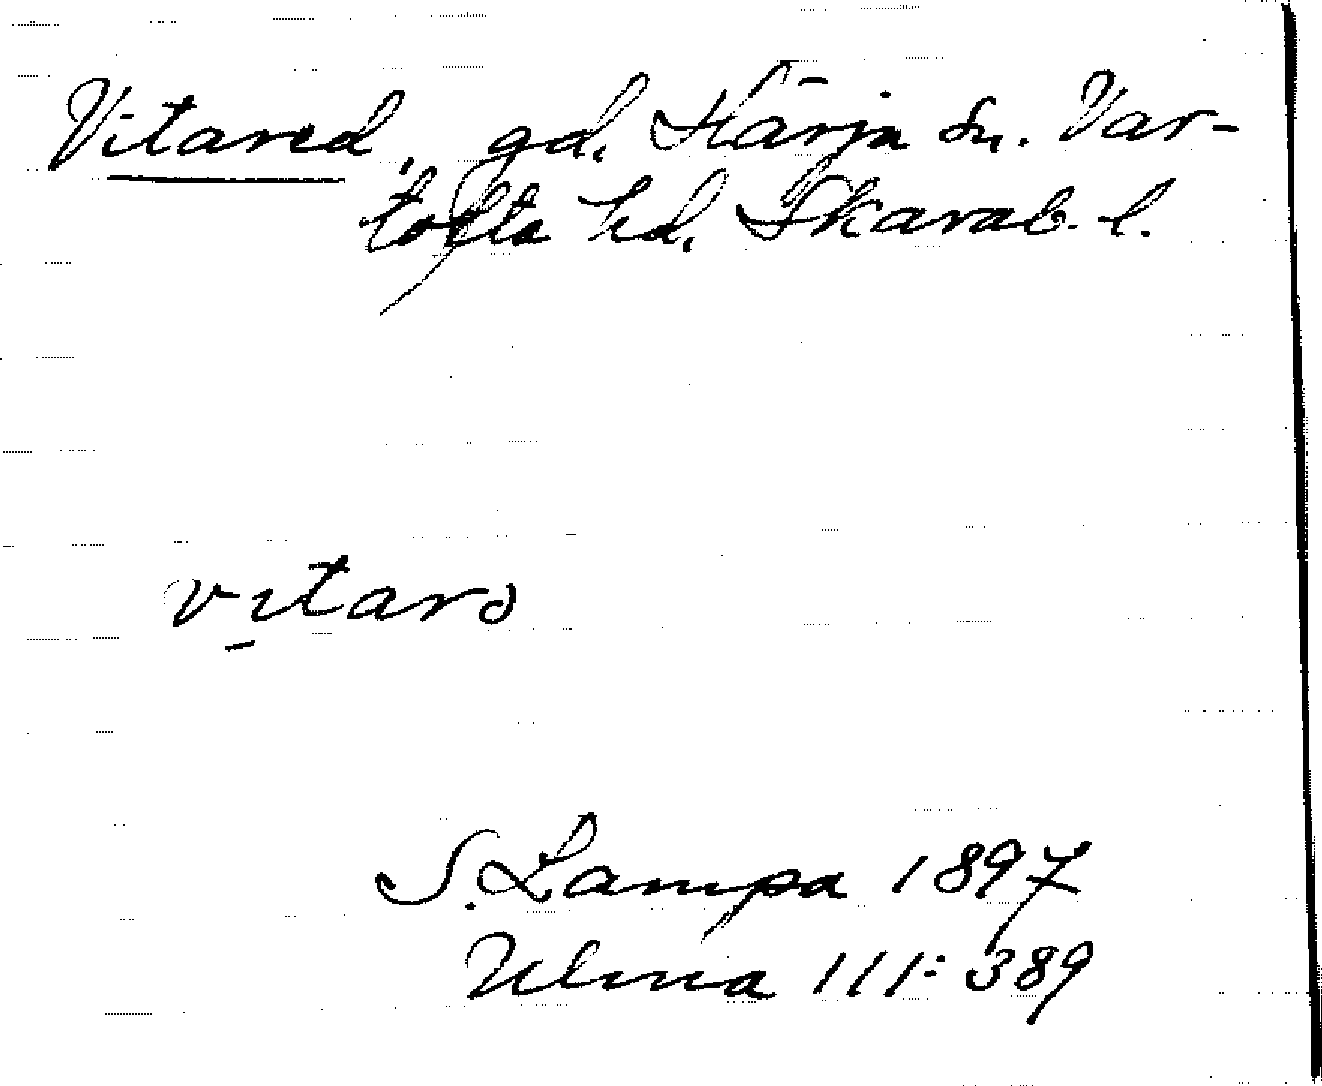 Vitared, gd. Härja sn. Var-
tofta hd. Skarab. l.
vıtarə
S. Lampa 1897
Ulma 111:389